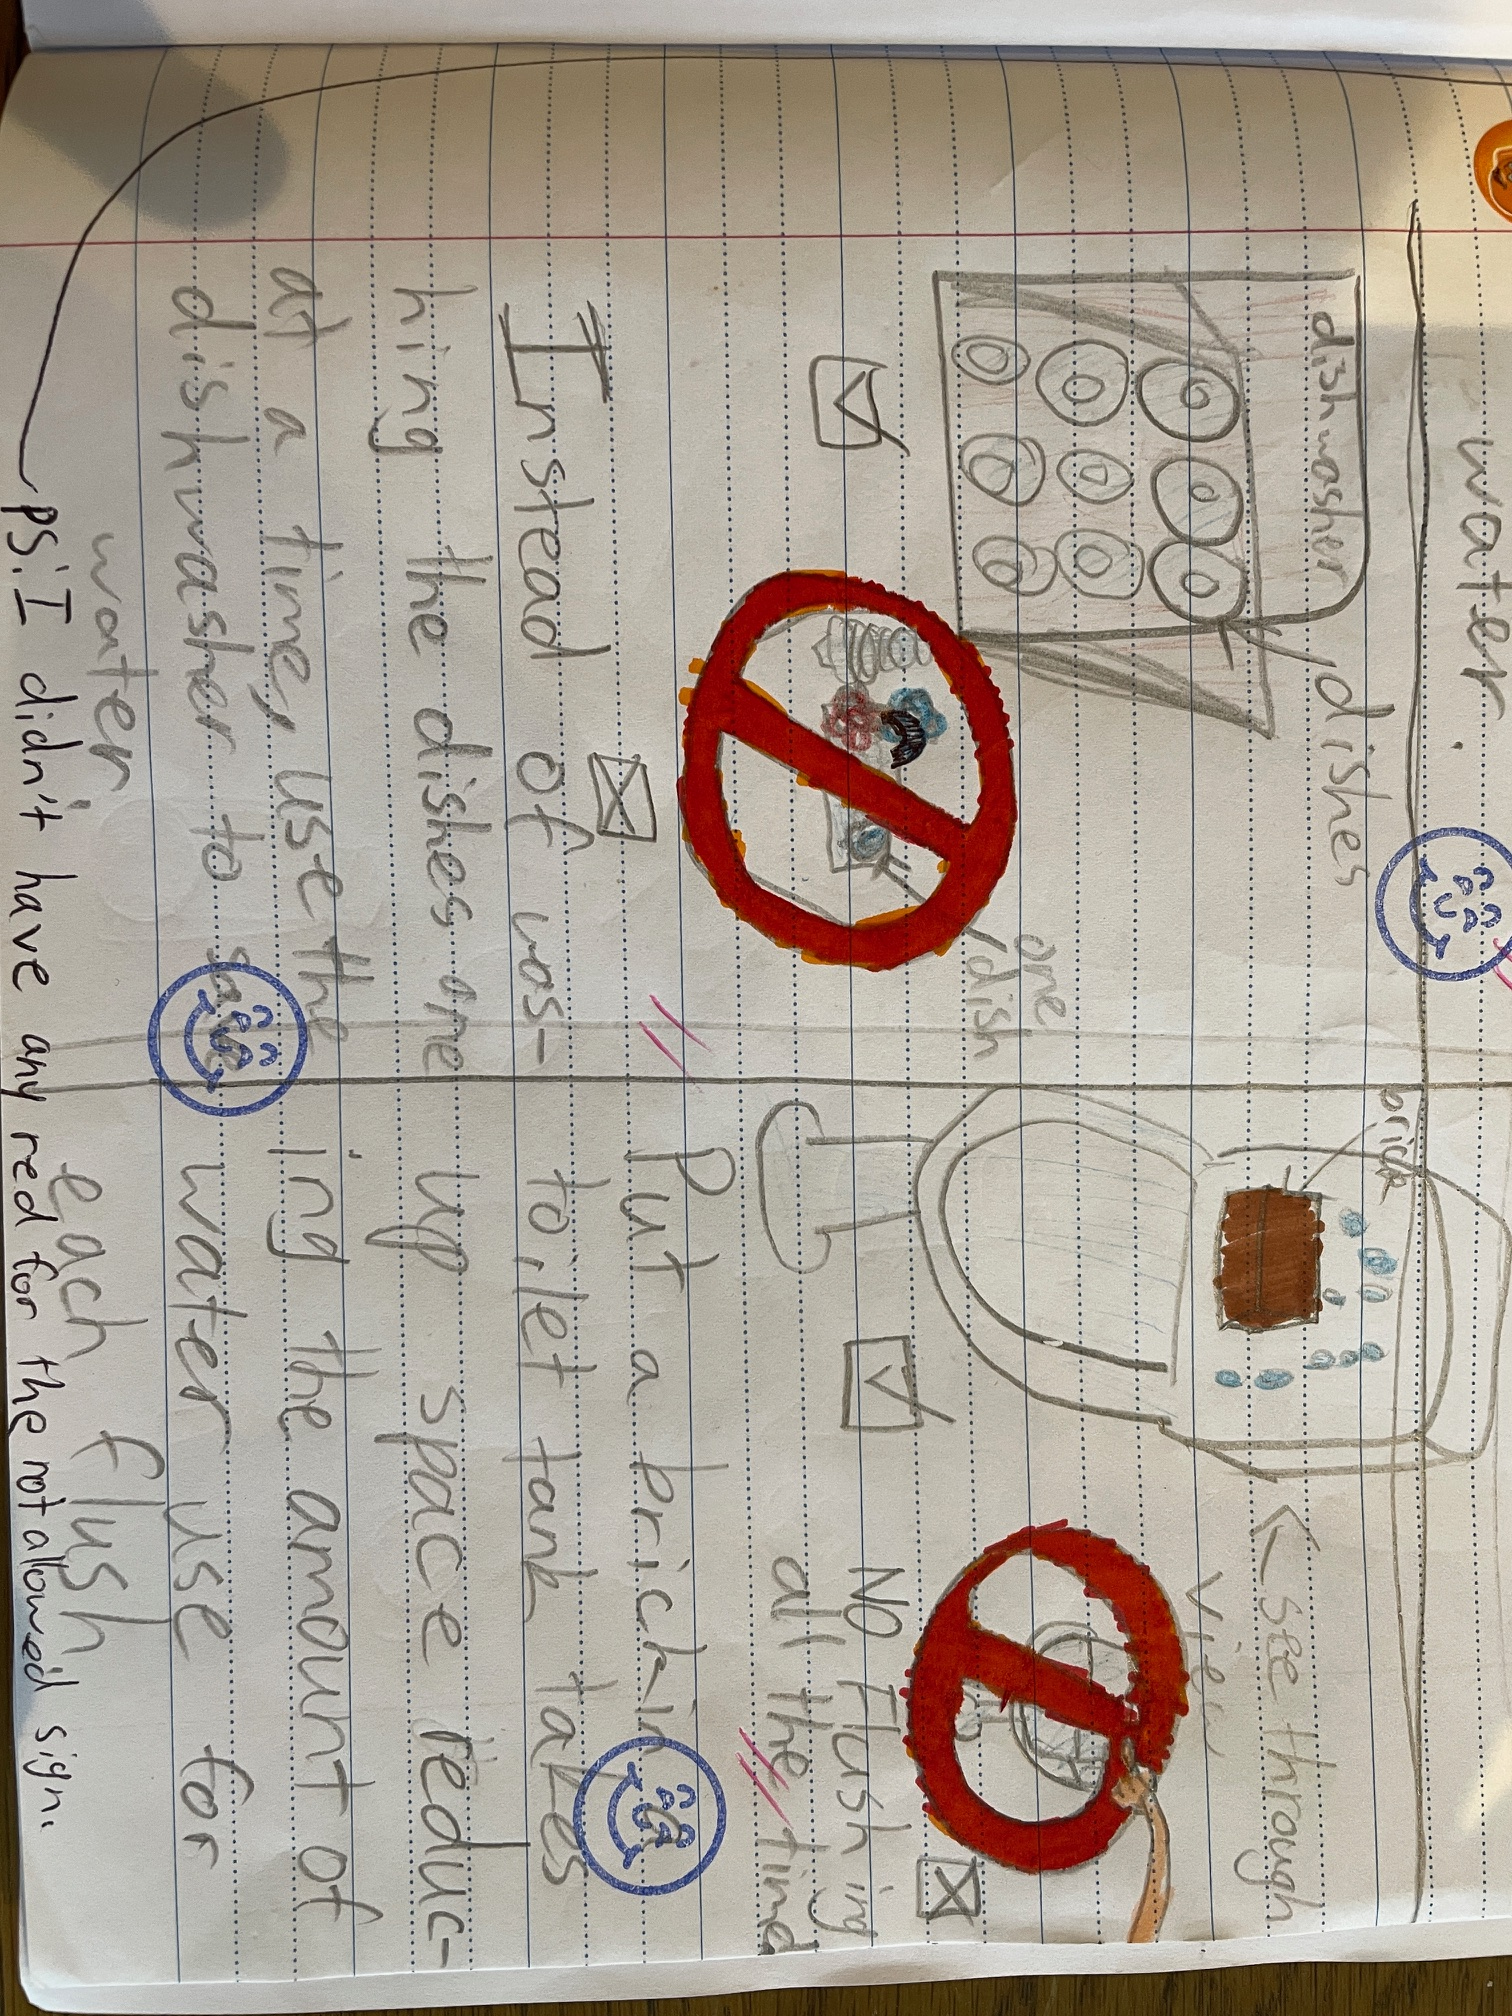 water.
dishwasher
dishes
one
dish
Instead of was-
hing the dishes one
at a time, use the
dishwasher to save
water
brick
< see through
view
No Flushing
all the time
Put a brick in a
toilet tank takes
up space reduc-
ing the amount of
water use for
each flush
PS. I didn't have any red for the not allowed sign.